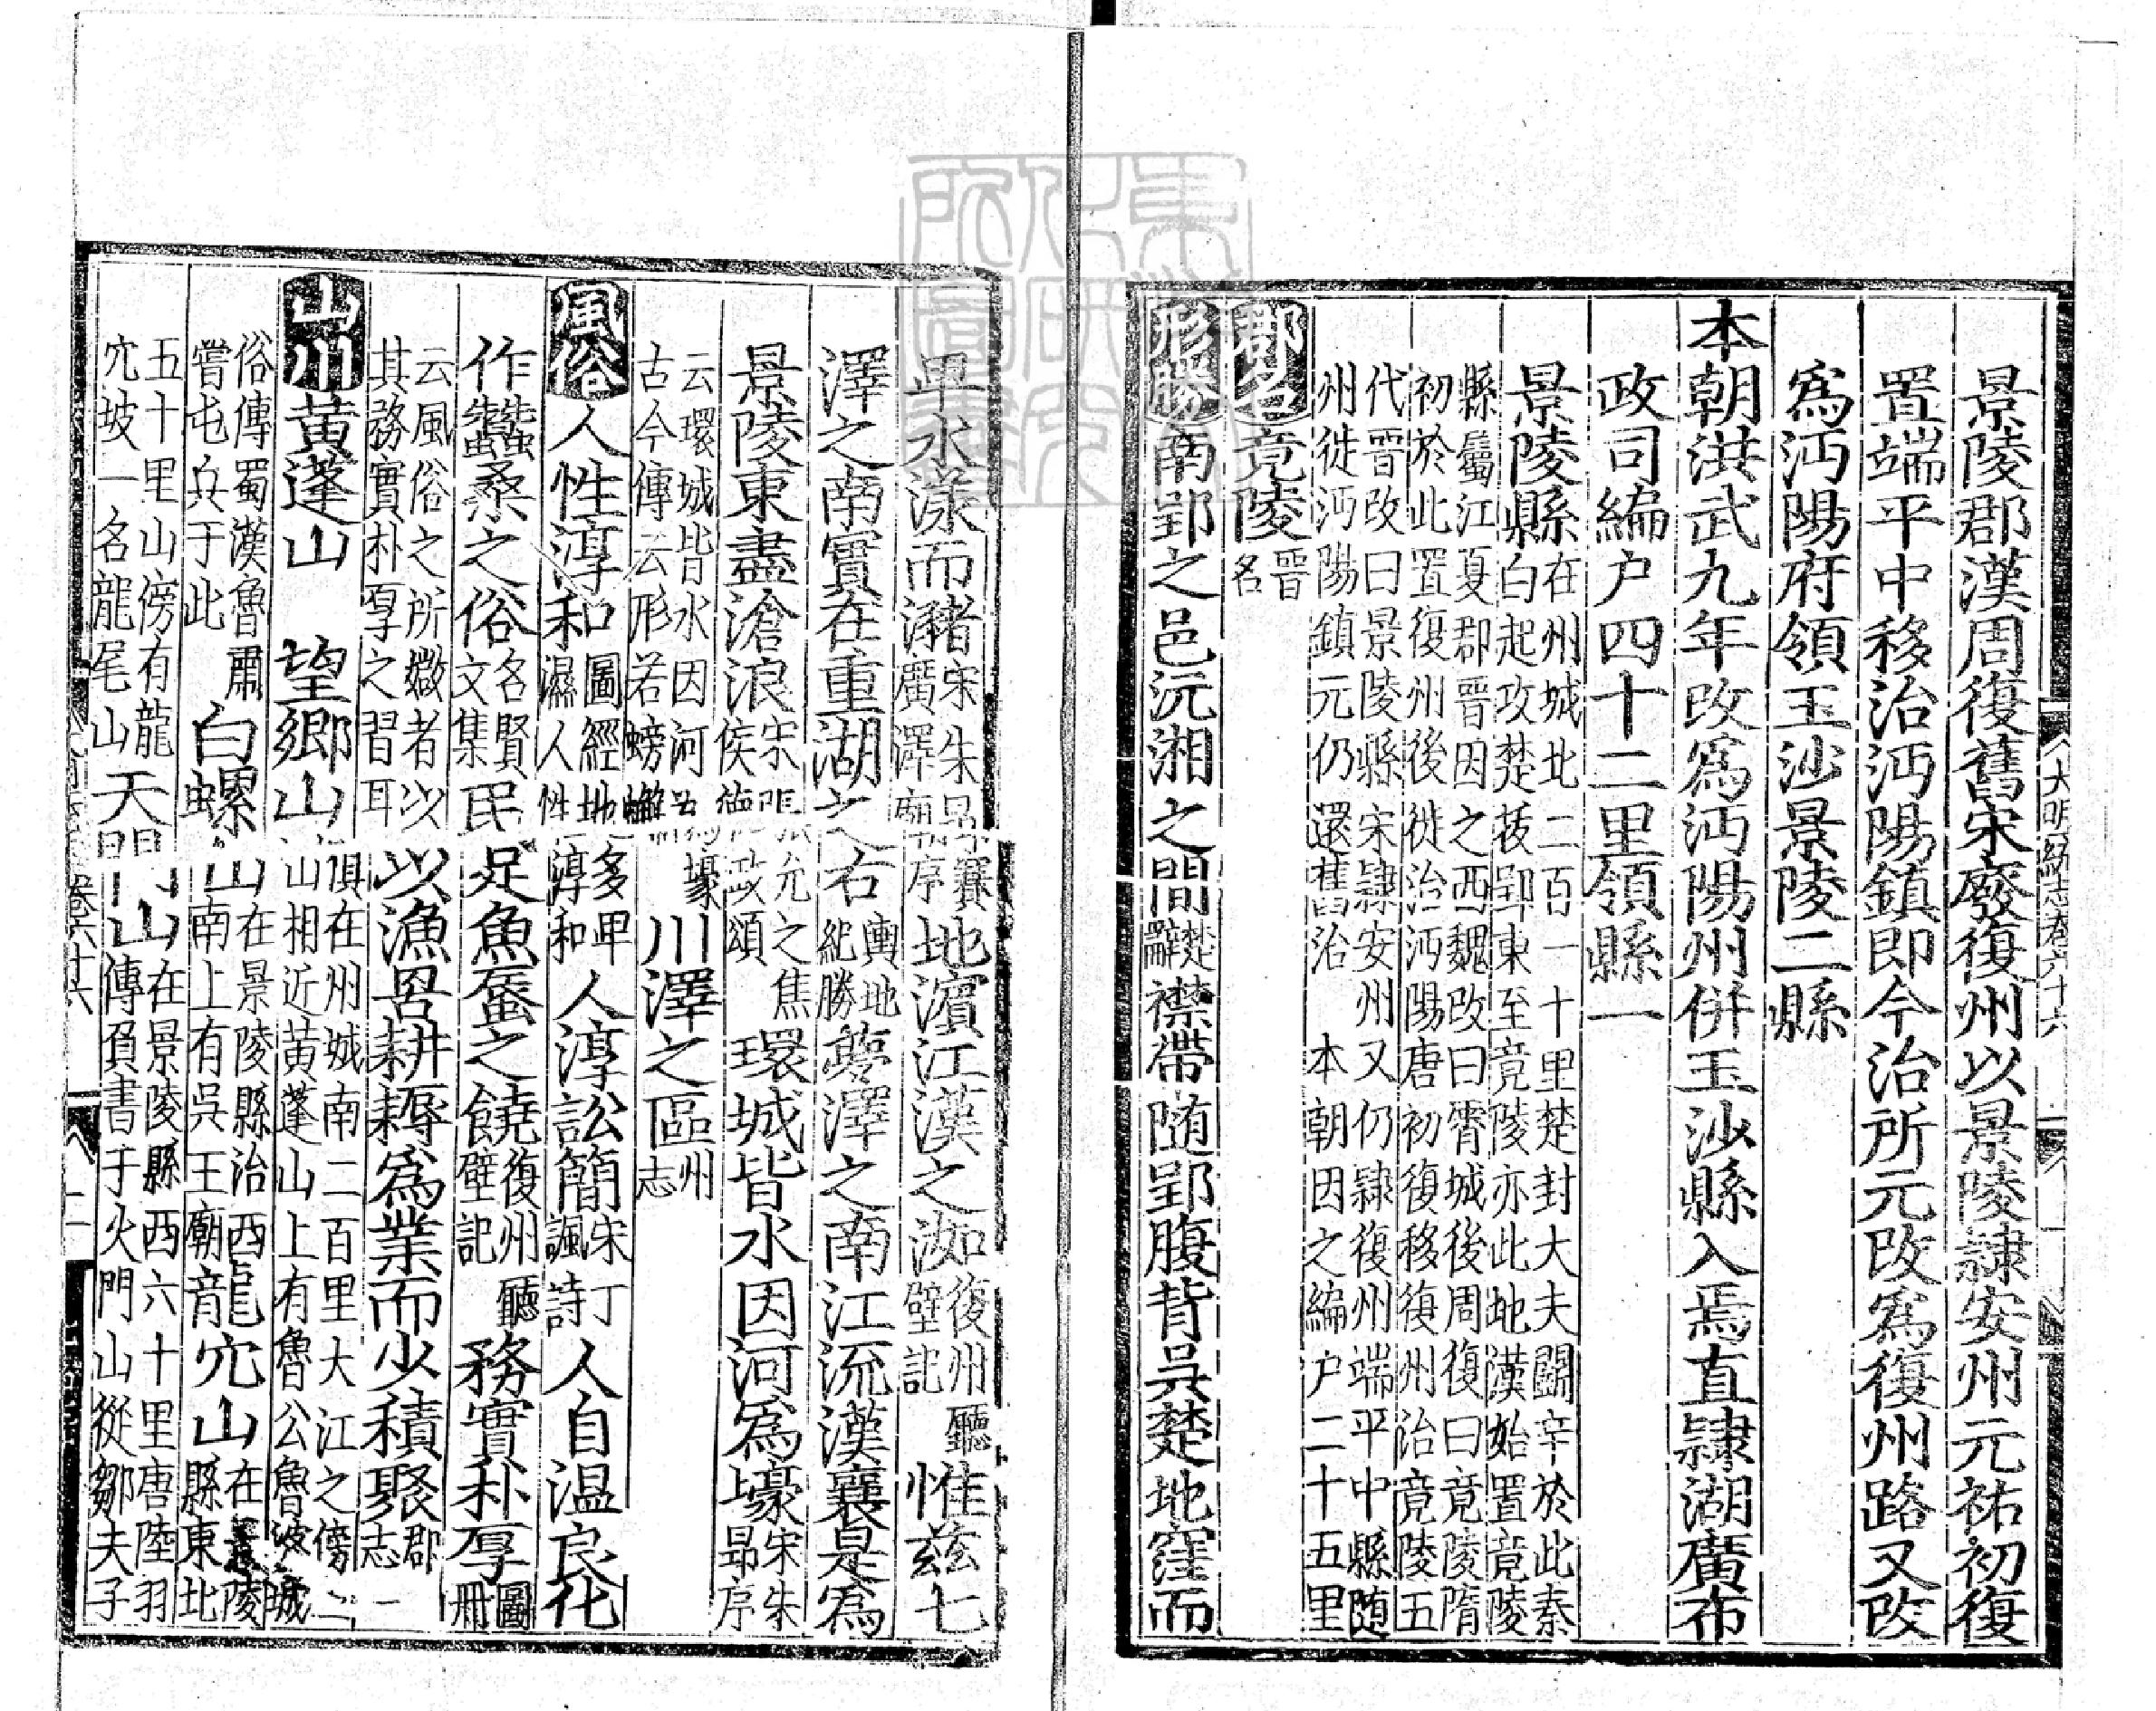 景陵郡漢周復舊宋廢復州以景陵隷安州元祐初復
置端平中移治沔陽鎮即今治所元改爲復州路又改
爲沔陽府領玉沙景陵二縣
本朝洪武九年改爲沔陽州併玉沙縣入焉直隷湖廣布
政司編户四十二里領縣一
景陵縣
在州城北二百一十里楚封大夫鬬辛於此秦
白起攻楚拔郢東至竟陵亦此地漢始置竟陵
縣屬江夏郡晉因之西魏改曰霄城後周復曰竟陵隋
初於此置復州後徙治沔陽唐初復移復州治竟陵五
代晉改曰景陵縣宋隷安州又仍隷復州端平中縣随
州徙沔陽鎮元仍還舊治　本朝因之編户二十五里
郡名竟陵
晉
名
形勝南郢之邑沅湘之間
楚
辭
襟帶随郢腹背吳楚地窪而
卑水漾而瀦
宋朱昂賽
廣澤廟序
地濵江漢之洳
復州廳
壁記
惟兹七
澤之南實在重湖之右
輿地
紀勝
夢澤之南江流漢襄是爲
景陵東盡滄浪
宋張允之焦
侯德政頌
環城皆水因河爲壕
宋朱
昻序
云環城皆水因河爲壕
古今傳云形若螃蠏
川澤之區
州
志
風俗人性淳和
圖經地多卑
濕人性淳和
人淳訟簡
宋丁
諷詩
人自温良化
作蠶桑之俗
名賢
文集
民足魚蜃之饒
復州廳
壁記
務實朴厚
圖
冊
云風俗之所媺者以
其務實朴厚之習耳
以漁畧耕耨爲業而少積聚
郡
志
山川黄蓬山　望鄉山
俱在州城南二百里大江之傍二
山相近黄蓬山上有魯公魯波城
俗傳蜀漢魯肅
嘗屯兵于此
白螺山
在景陵縣治西
南上有吳王廟
龍穴山
在景陵
縣東北
五十里山傍有龍
穴坡一名龍尾山
天門山
在景陵縣西六十里唐陸羽
傳負書于火門山從鄒夫子
大明一統志卷六十六
卷六十六
二